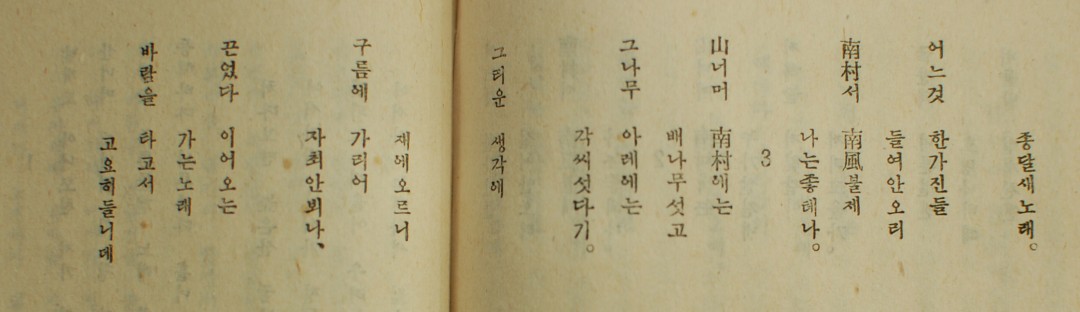 종달새노래。
어느것 한가진들
들여안오리
南村서 南風불제
나는좋데나。
3
山너머 南村에는
배나무섯고
그나무 아레에는
각씨섯다기。
그티운 생각에
재에오르니
구름에 가리어
자최안뵈나、
끈었다 이어오는
가는노래
바람을 타고서
고요히들니데